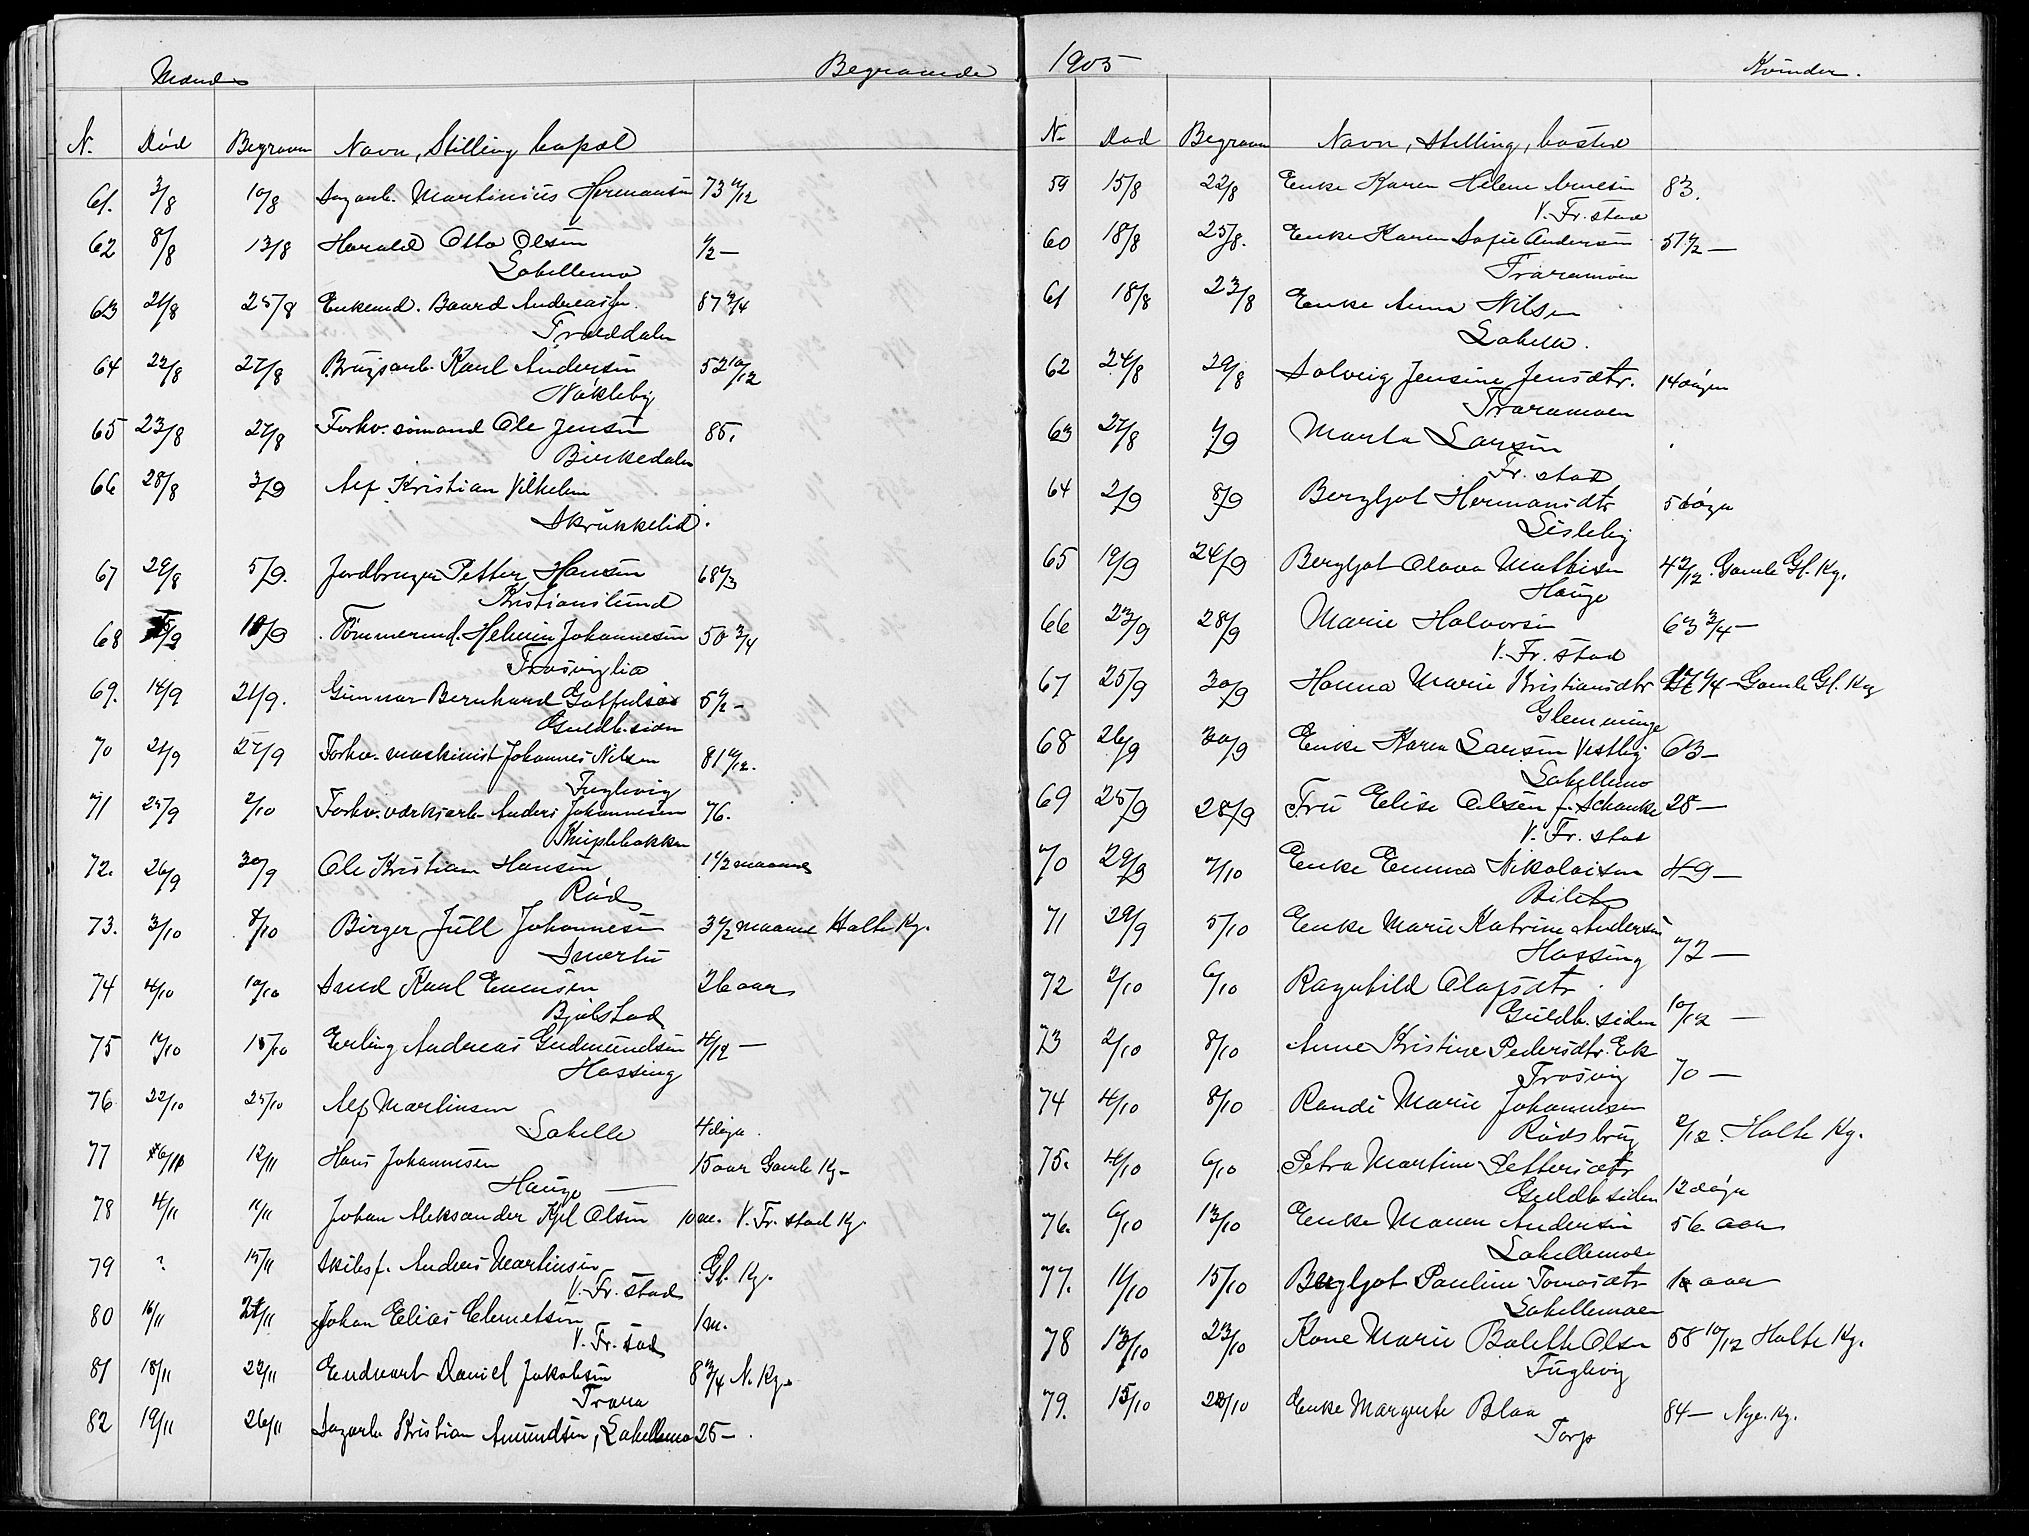 Mænd
Begravede
N. Død Begraven Navn, Stilling, bopæl
61. 3/8 10/8 Sagarb. Martinius Hermansen 73
62 8/8 13/8 Harald Otto Olsen 1/2 —
Labellemo
63 21/8 25/8 Enkemd. Baard Andreassen. 87 3/4
Træddalen
64 22/8 27/8 Brugsarb. Karl Andersen 52 10/12
Nøkleby
65 23/8 27/8 Forhv. sømand Ole Jensen 85.
Birkedalen
66 28/8 3/9 Alf Kristian Vilhelm
Skrukkelid.
67 29/8 5/9. Jordbruger Petter Hansen 68 1/3
Kristianslund
68 10/9 Tømmermd. Helmin Johannesen 50 3/4
Trosviglia
69. 14/9 21/9. Gunnar Bernhard 5 1/2 –
Guldb. siden
70 21/9 27/9 Forhv. maskinist Johannes Nilsen 81
Fuglevig
71 25/9 2/10 Forhv. værksarb. Anders Johannesen 76.
Kniplebakken
72. 26/9 30/9 Ole Kristian Hansen 1 1/2 maaned
Rød
73. 3/10 8/10 Birger Jull Johannesen 3 1/2 maaned Holte Kg.
Smertu
74 4/10 10/10 Smed Karl Evensen 26 aar
Bjølstad
75 15/10 Erling Andreas Gudmundsen 4/12 —
Hassing
76 22/10 25/10 Alf Martinsen
Labelle 4 døgn.
77 12/11 Hans Johannesen 15 aar Gamle Kg –
Hauge
78 4/11 11/11 Johan Aleksander Kjel Olsen 10 m. V. Fr. stad Kg.
79 ? 15/11 Skibsf. Anders Martinsen Gl. Kg.
V. Fr. stad
80 16/11 21/11 Johan Elias Clemetsen 1 m.
V. Fr. stad
81 18/11 22/11 Endvart Daniel Jakobsen 8 3/4 N. Kg.
Trara
82 19/11 26/11 Sagarb. Kristian Amundsen, Labellemo 25 – .
1905
Kvinder.
No Død Begraven Navn, Stilling, bosted
59 15/8 22/8 Enke Karen Helene Arnesen 83.
V. Fr. stad
60 18/8 25/8. Enke Karen Sofie Andersen 51 1/2 —
Traramoen
61 18/8 23/8 Enke Anna Nilsen
Labelle.
62 24/8 29/8 Solveig Jensine Jensdtr. 14 døgn
Traramoen
63 27/8 1/9 Marta Larsen
Fr. stad
64 2/9 8/9 Bergljot Hermansdtr 5 døgn
Lisleby
65 19/9 24/9 Bergljot Olava Mathisen 4 2/12. Gamle Gl. Kg.
Hauge
66 23/9 28/9 Marie Halvorsen 63 3/4 —
V. Fr. stad
67 25/9 30/9 Hanna Marie Kristiansdtr 1/4 – Gamle Gl. Kg
Glemminge
68 26/9 30/9 Enke Karen Larsen Vestby 63 –
Labellemo
69 25/9 28/9 Fru Elise Olsen f. Schanke 28 —
V. Fr. stad
70 29/9 7/10 Enke Emma Nikolaisen 49 —
Bilet
71 29/9 5/10 Enke Marie Katrine Andersen
Hassing 72 —
72 2/10 6/10 Ragnhild Olafsdtr.
Guldb. siden 10/12 —
73 2/10 8/10 Anne Kristine Pedersdtr. Enk
Trosvig 70 —
74 4/10 8/10 Randi Marie Johannesen
Rødsbrug 2/12. Holte Kg.
75. 4/10 6/10 Petra Martine Pettersdtr
Guldb. siden 12 døgn
76. 6/10 13/10 Enke Maren Andersen 56 aar
Labellemoen
77. 11/10 15/10 Bergljot Pauline Tomasdtr aar
Labellemoen
78 13/10 23/10 Kone Marie Bolette Olsen 58 10/12 Holte Kg.
Fuglevig
79. 15/10 20/10 Enke Margrete Blaa 84 — Nye. Kg.
Torp